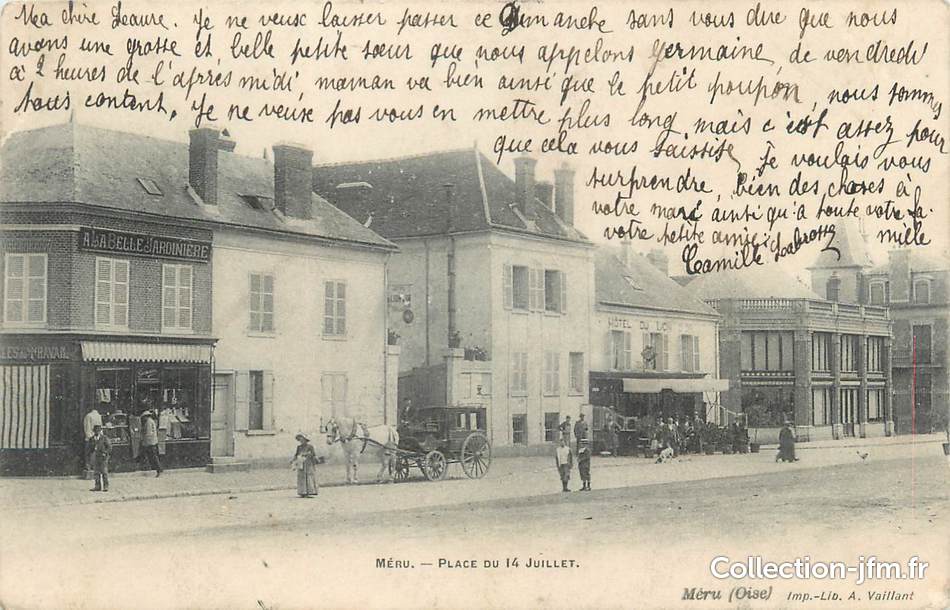 Ma chère Leaure. Je ne veuse laisser passer ce Dimanche sans vous dire que nous
avons une grosse et belle petite sœur que nous appelons Germaine, de vendredi
à 2 heures de l'apres midi, maman va bien ainsi que le petit poupon, nous sommes
tous content. Je ne veuse pas vous en mettre plus long, mais c'est assez pour
que cela vous saisisse, Je voulais vous
surprendre, bien des choses à
votre mari ainsi qu'à toute votre fa-
mille
votre petite amie
Camille
A LA BELLE JARDINIERE
HÔTEL DU LION
MÉRU. — PLACE DU 14 JUILLET.
Collection-jfm.fr
Méru (Oise) Imp.-Lib. A. Vaillant